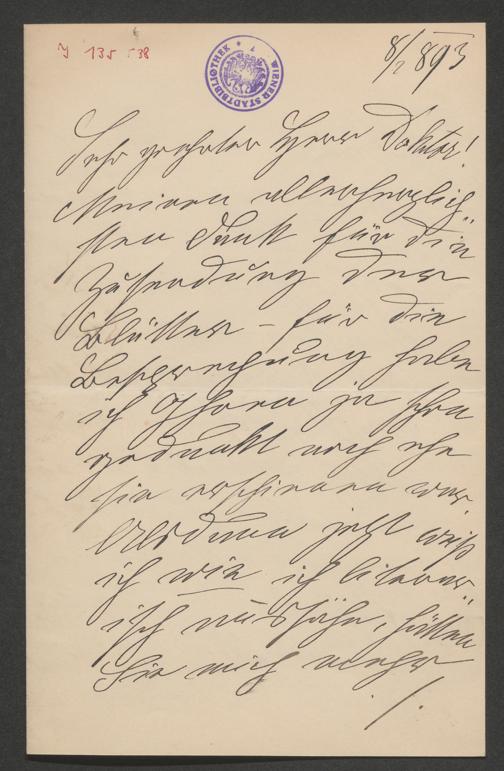 J 135 538
WIENER STADTBIBLIOTHEK
8/2 893
Sehr geehrter Herr Doktor!
Meinen allerherzlich-
sten Dank für die
Zusendung der
Blätter – für die
Besprechung habe
ich Ihnen ja schon
gedankt noch ehe
sie erschienen war.
denn jetzt weiß
ich wie ich literar-
isch aussähe, hätten
Sie mich